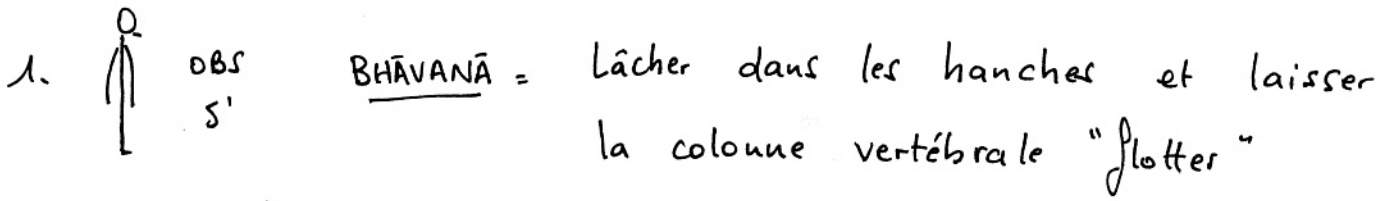 1. OBS BHĀVANĀ = Lâcher dans les hanches et laisser
5' la colonne vertébrale "flotter"